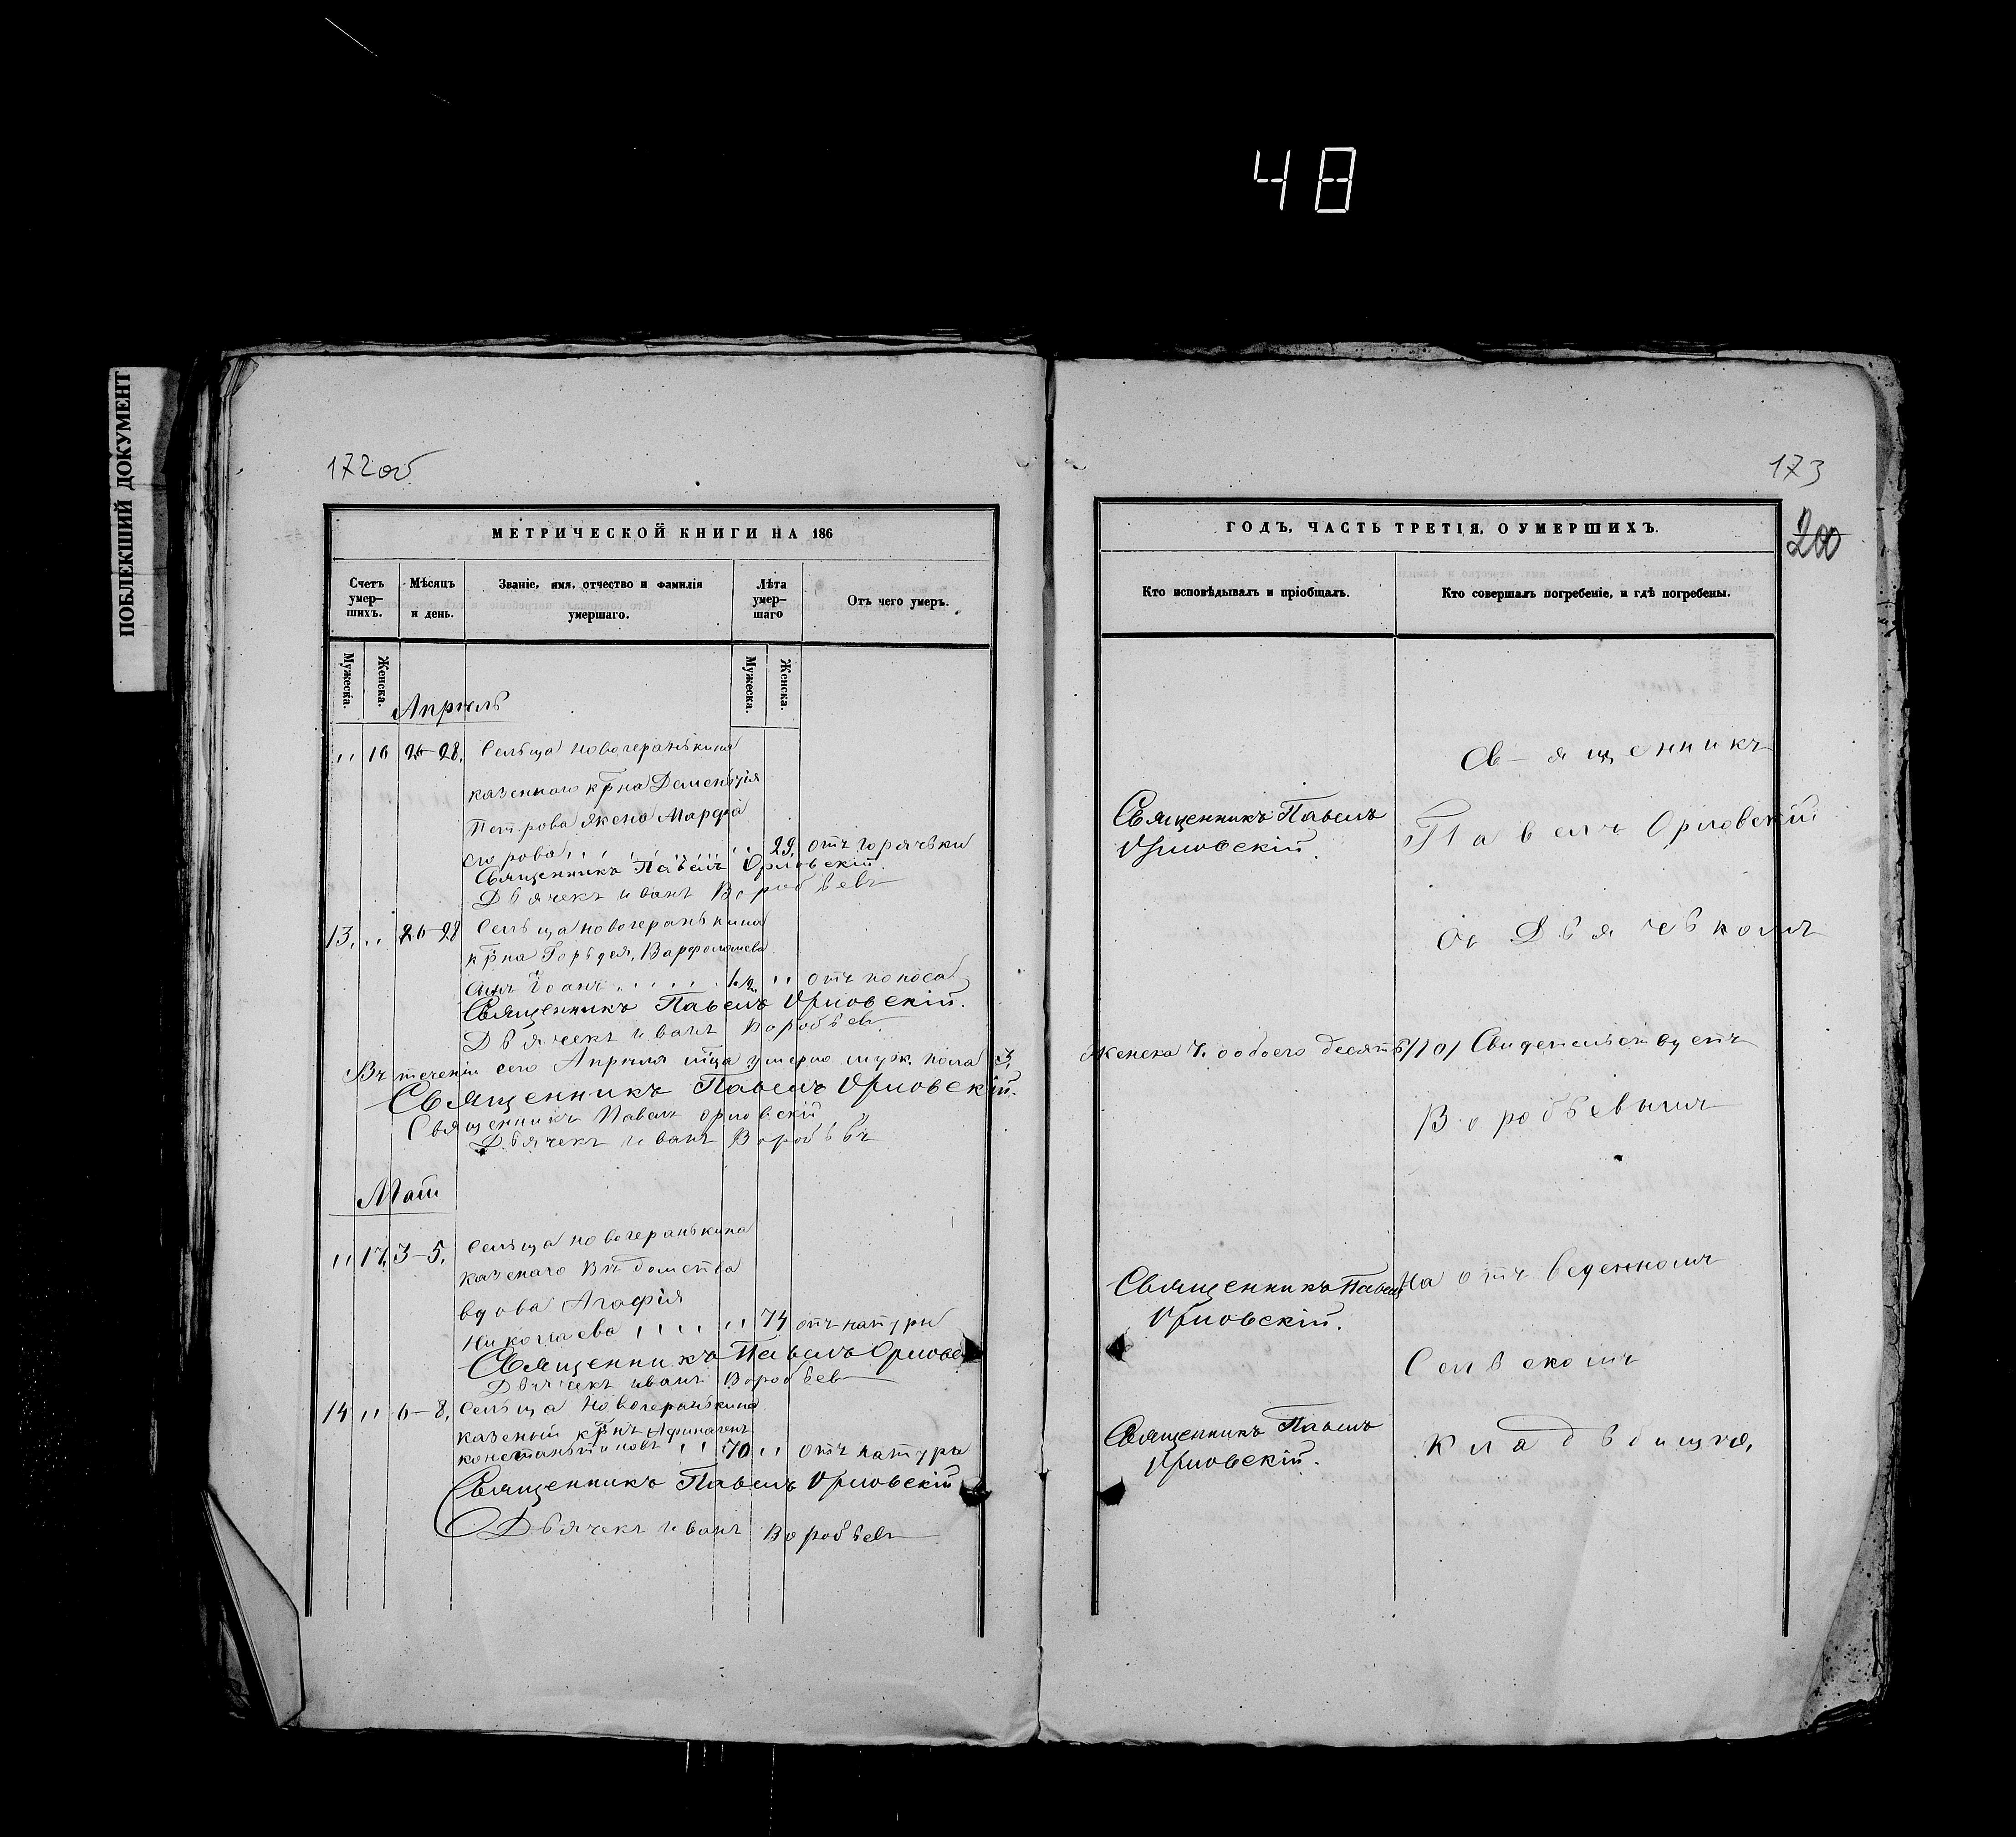 48
ПОБЛЕКШИЙ ДОКУМЕНТ
172об
МЕТРИЧЕСКОЙ КНИГИ НА 186
Счетъ умер-шихъ.
Мѣсяцъ и день.
Званіе, имя, отчество и фамилія умершаго.
Лѣта умер-шаго
Отъ чего умеръ.
Мужеска.
Женска.
Мужеска.
Женска.
Апрѣль
,, 16 26-28. Сельца новогеранькина
казенного крна Дементія
Петрова жена Марфа
егорова ,, 29, отъ горячьки
Священникъ Павелъ Орловскій.
Дьячекъ иванъ Воробьевъ
13. ,, 26-28 Сельца новогеранькина
крна Горьдея, Варфоломеева
сынъ Іоанъ 1/2 ,, отъ поноса
Священникъ Павелъ Орловскій.
Дьячекъ иванъ Воробьевъ
Въ теченіи сего Апреля мца умерло муж. пола 3,
Священникъ Павелъ Орловскій.
Священникъ Павелъ орловскій
Дьячекъ иванъ Воробьвъ
Маій
,, 17, 3-5. Сельца новогеранькина
казенаго Вѣдомства
вдова Агафія
Николаева ,, 74 отъ натуры
Священникъ Павелъ Орловс
Дьячекъ иванъ Воробьевъ
14 ,, 6-8. Сельца Новогеранькина
казеный крнъ Афиногенъ
констанътиновъ ,, 70 ,, отъ натуры
Священникъ Павелъ Орловскій
Дьячекъ иванъ Воробьевъ
173
200
ГОДЪ, ЧАСТЬ ТРЕТІЯ, О УМЕРШИХЪ.
Кто исповѣдывалъ и пріобщалъ.
Кто совершалъ погребеніе, и гдѣ погребены.
Священникъ
Священникъ Павелъ
Орловскій.
Павелъ Орловскій
съ Дьячькомъ
Женска 7. обоего десять /10/ Свидетельствуетъ
Воробьевымъ
Священникъ Павелъ
Орловскій.
На отъведенномъ
Сельскомъ
Священникъ Павелъ
Орловскій.
Кладьбищѣ,